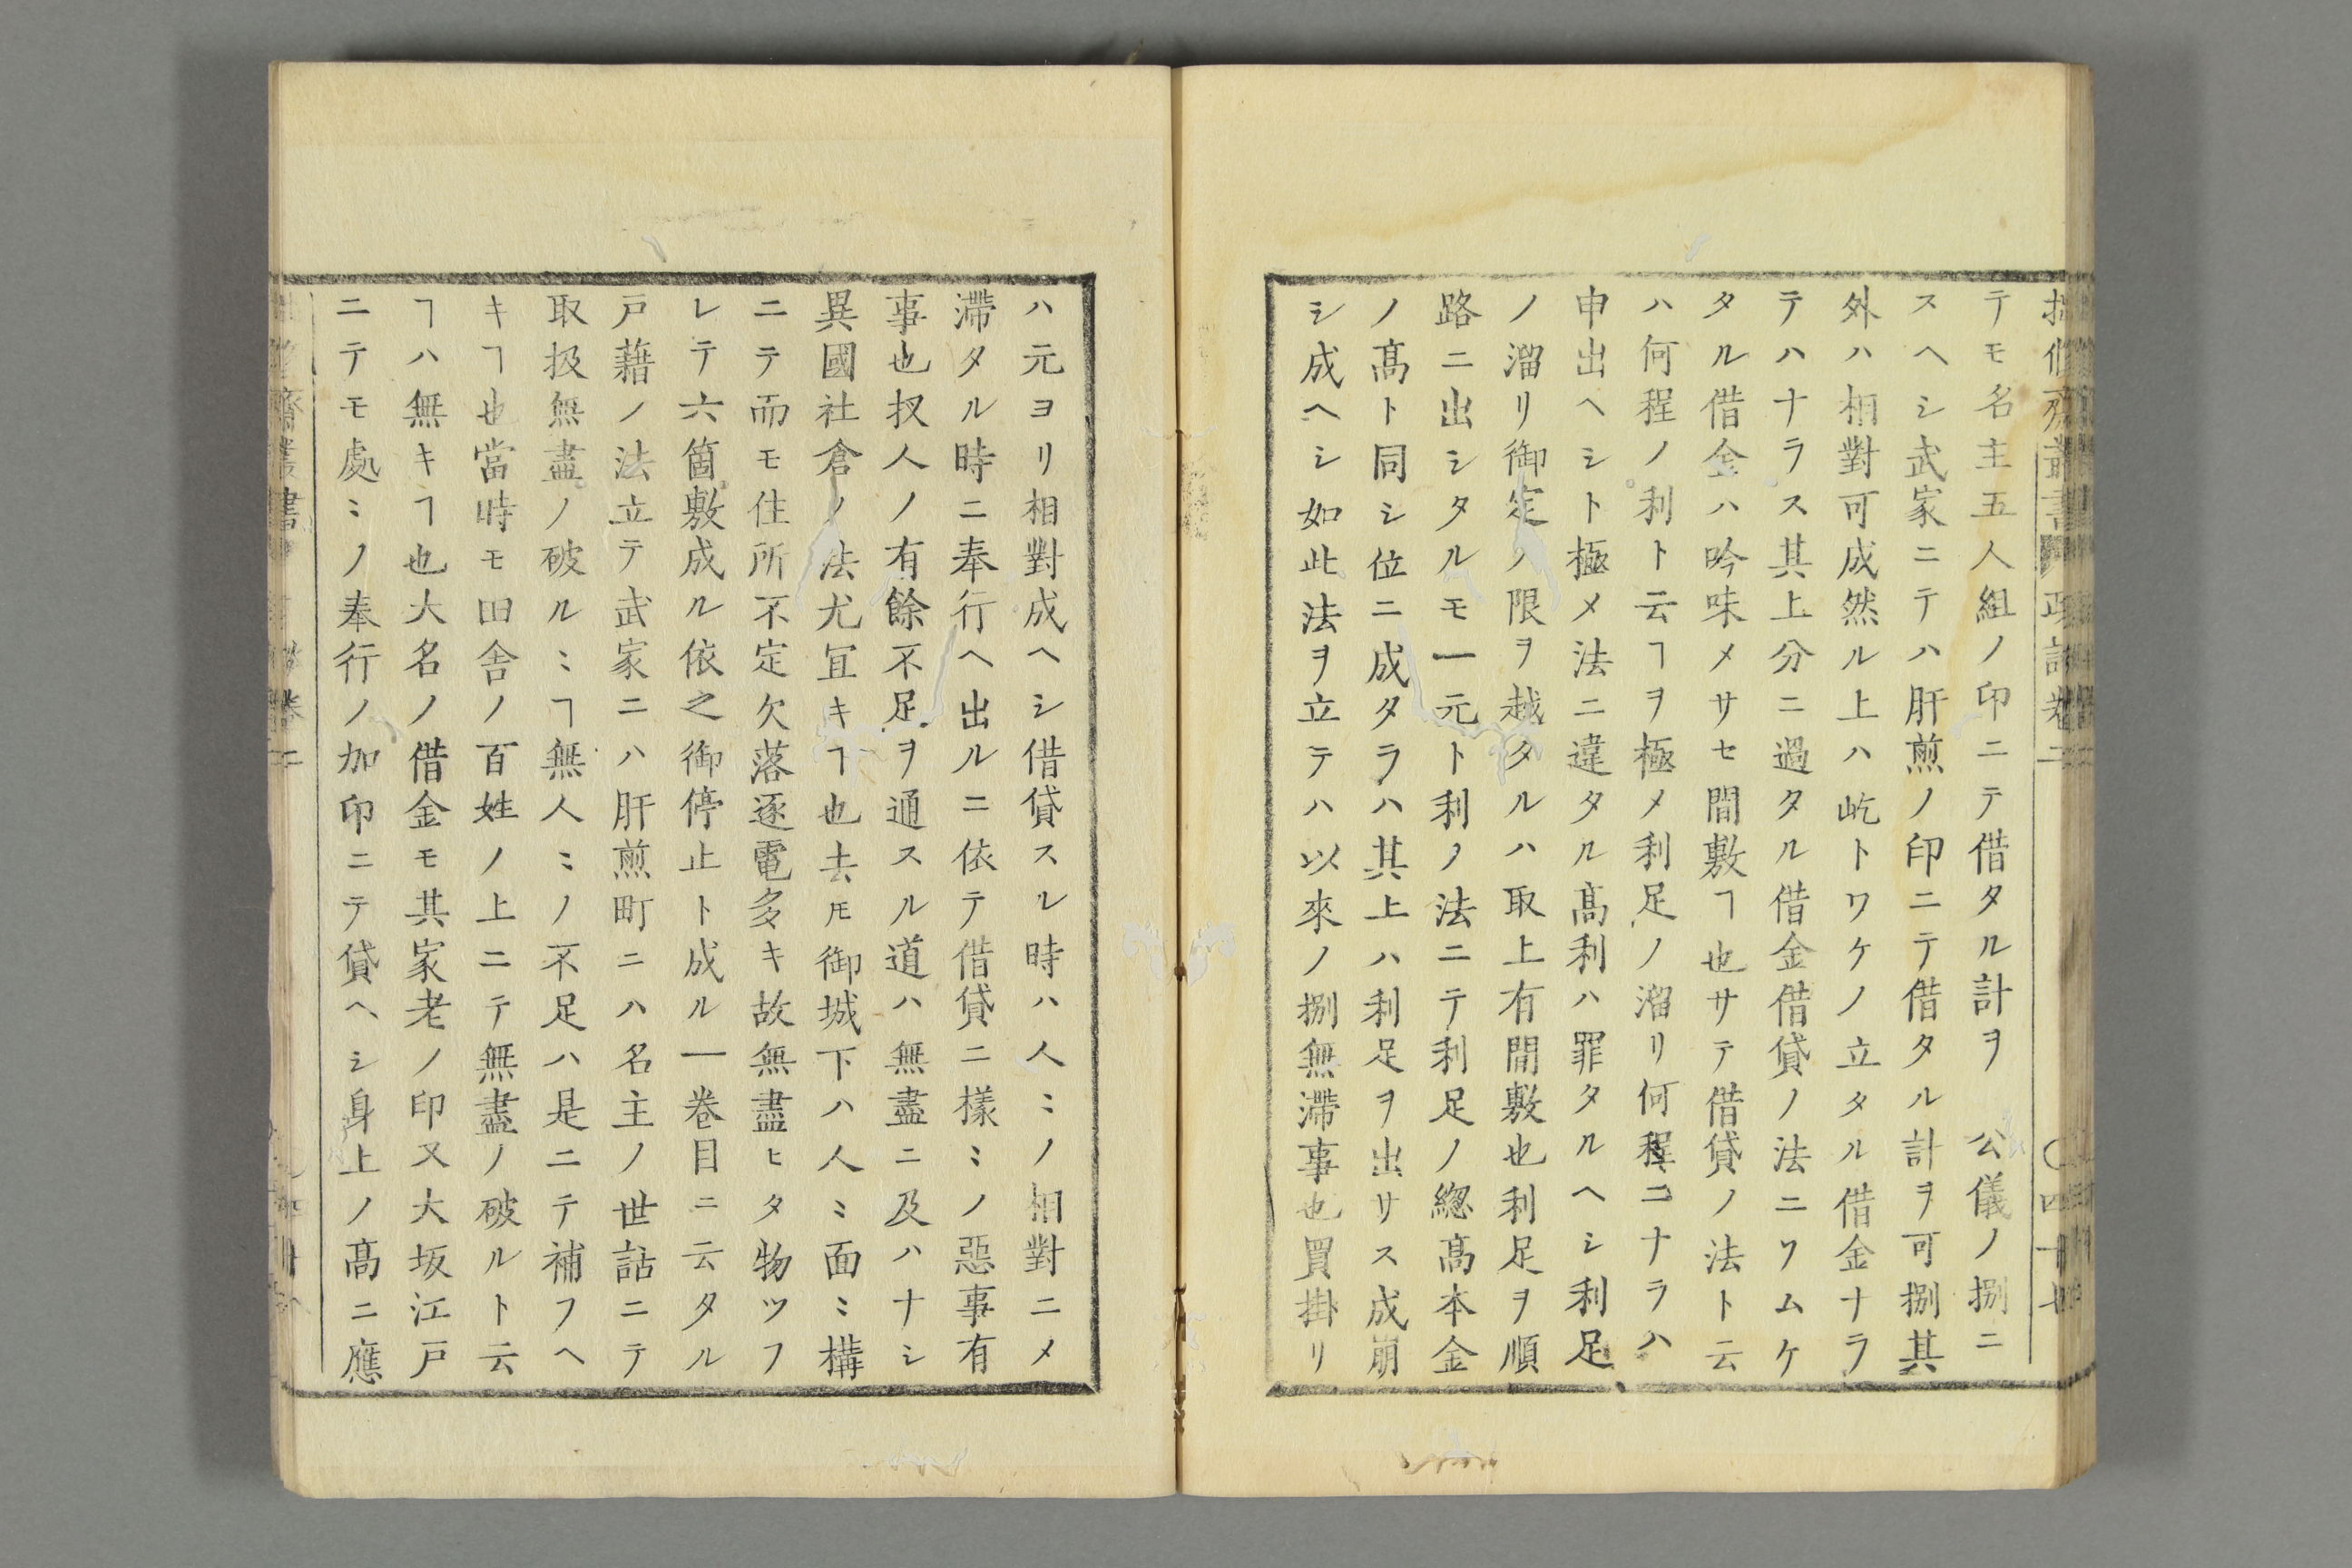 テモ名主五人組ノ印ニテ借タル計ヲ　公儀ノ捌ニ
スヘシ武家ニテハ肝煎ノ印ニテ借タル計ヲ可捌其
外ハ相對可成然ル上ハ屹トワケノ立タル借金ナラ
テハナラス其上分ニ過タル借金借貸ノ法ニワムケ
タル借金ハ吟味メサセ間敷ヿ也サテ借貸ノ法ト云
ハ何程ノ利ト云ヿヲ極メ利足ノ溜リ何程ニナラハ
申出ヘシト極メ法ニ違タル髙利ハ罪タルヘシ利足
ノ溜リ御定ノ限ヲ越タルハ取上有間敷也利足ヲ順
路ニ出シタルモ一元ト利ノ法ニテ利足ノ總髙本金
ノ髙ト同シ位ニ成タラハ其上ハ利足ヲ出サス成崩
シ成ヘシ如此法ヲ立テハ以來ノ捌無滯事也買掛リ
ハ元ヨリ相對成ヘシ借貸スル時ハ人〻ノ相對ニメ
滯タル時ニ奉行ヘ出ルニ依テ借貸ニ樣〻ノ惡事有
事也扠人ノ有餘不足ヲ通スル道ハ無盡ニ及ハナシ
異國社倉ノ法尤冝キヿ也去𪜈御城下ハ人〻面〻構
ニテ而モ住所不定欠落逐電多キ故無盡ヒタ物ツフ
レテ六箇敷成ル依之御停止ト成ル一巻目ニ云タル
戸藉ノ法立テ武家ニハ肝煎町ニハ名主ノ世話ニテ
取扱無盡ノ破ル〻ヿ無人〻ノ不足ハ是ニテ補フヘ
キヿ也當時モ田舎ノ百姓ノ上ニテ無盡ノ破ルト云
ヿハ無キヿ也大名ノ借金モ其家老ノ印又大坂江戸
ニテモ處〻ノ奉行ノ加印ニテ貸ヘシ身上ノ髙ニ應